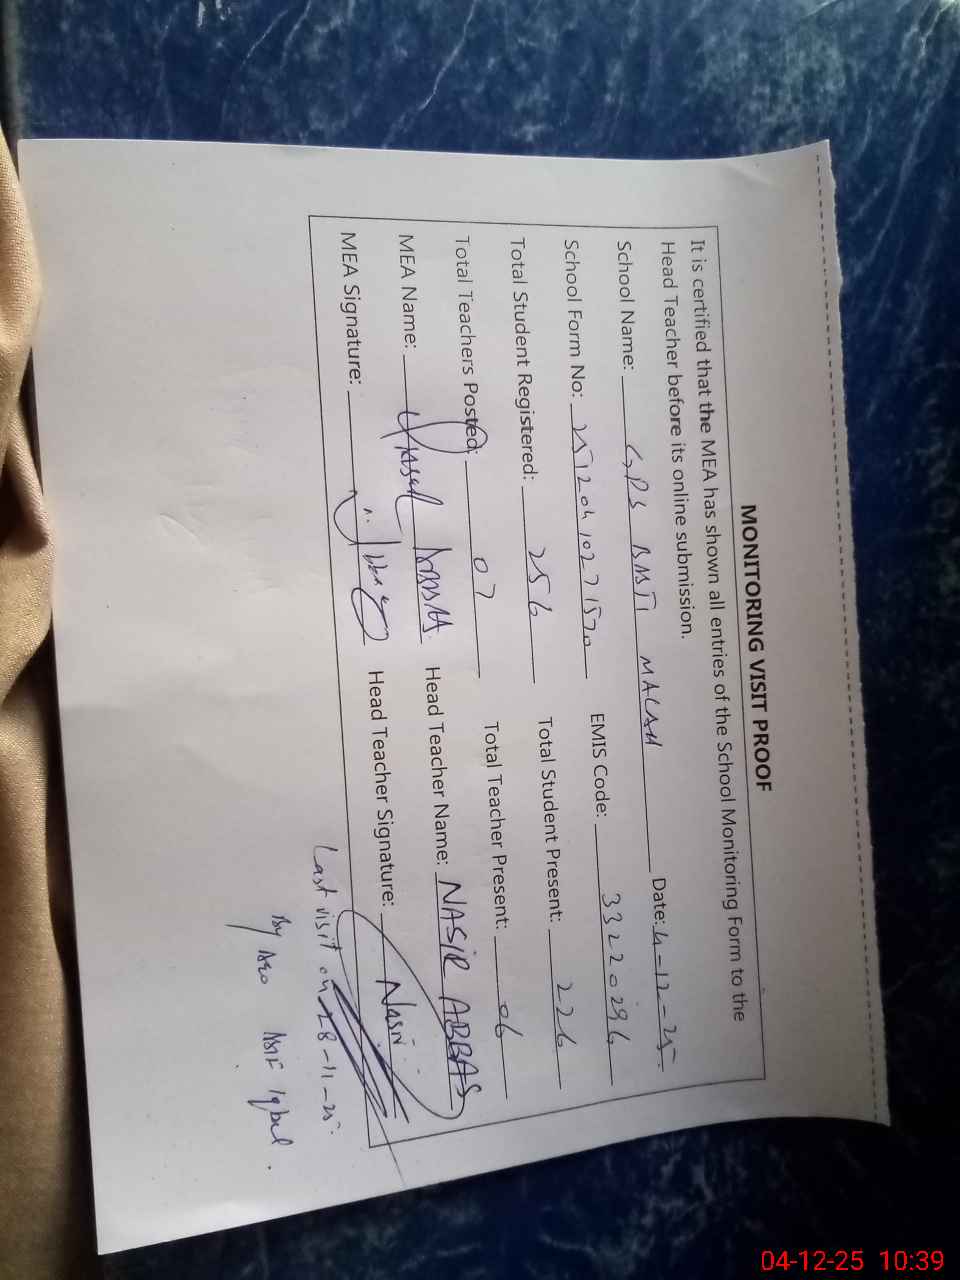 MONITORING VISIT PROOF
It is certified that the MEA has shown all entries of the School Monitoring Form to the
Head Teacher before its online submission.
School Name: GPS BASTI MALAH Date: 4-12-25
School Form No: EMIS Code: 33220296
Total Student Registered: 256 Total Student Present: 226
Total Teachers Posted: 07 Total Teacher Present: 06
MEA Name: ABBAS Head Teacher Name: NASIR ABBAS
MEA Signature: Head Teacher Signature: Nasir
Last visit on 28-11-25
By AEO ASIF Iqbal.
04-12-25 10:39